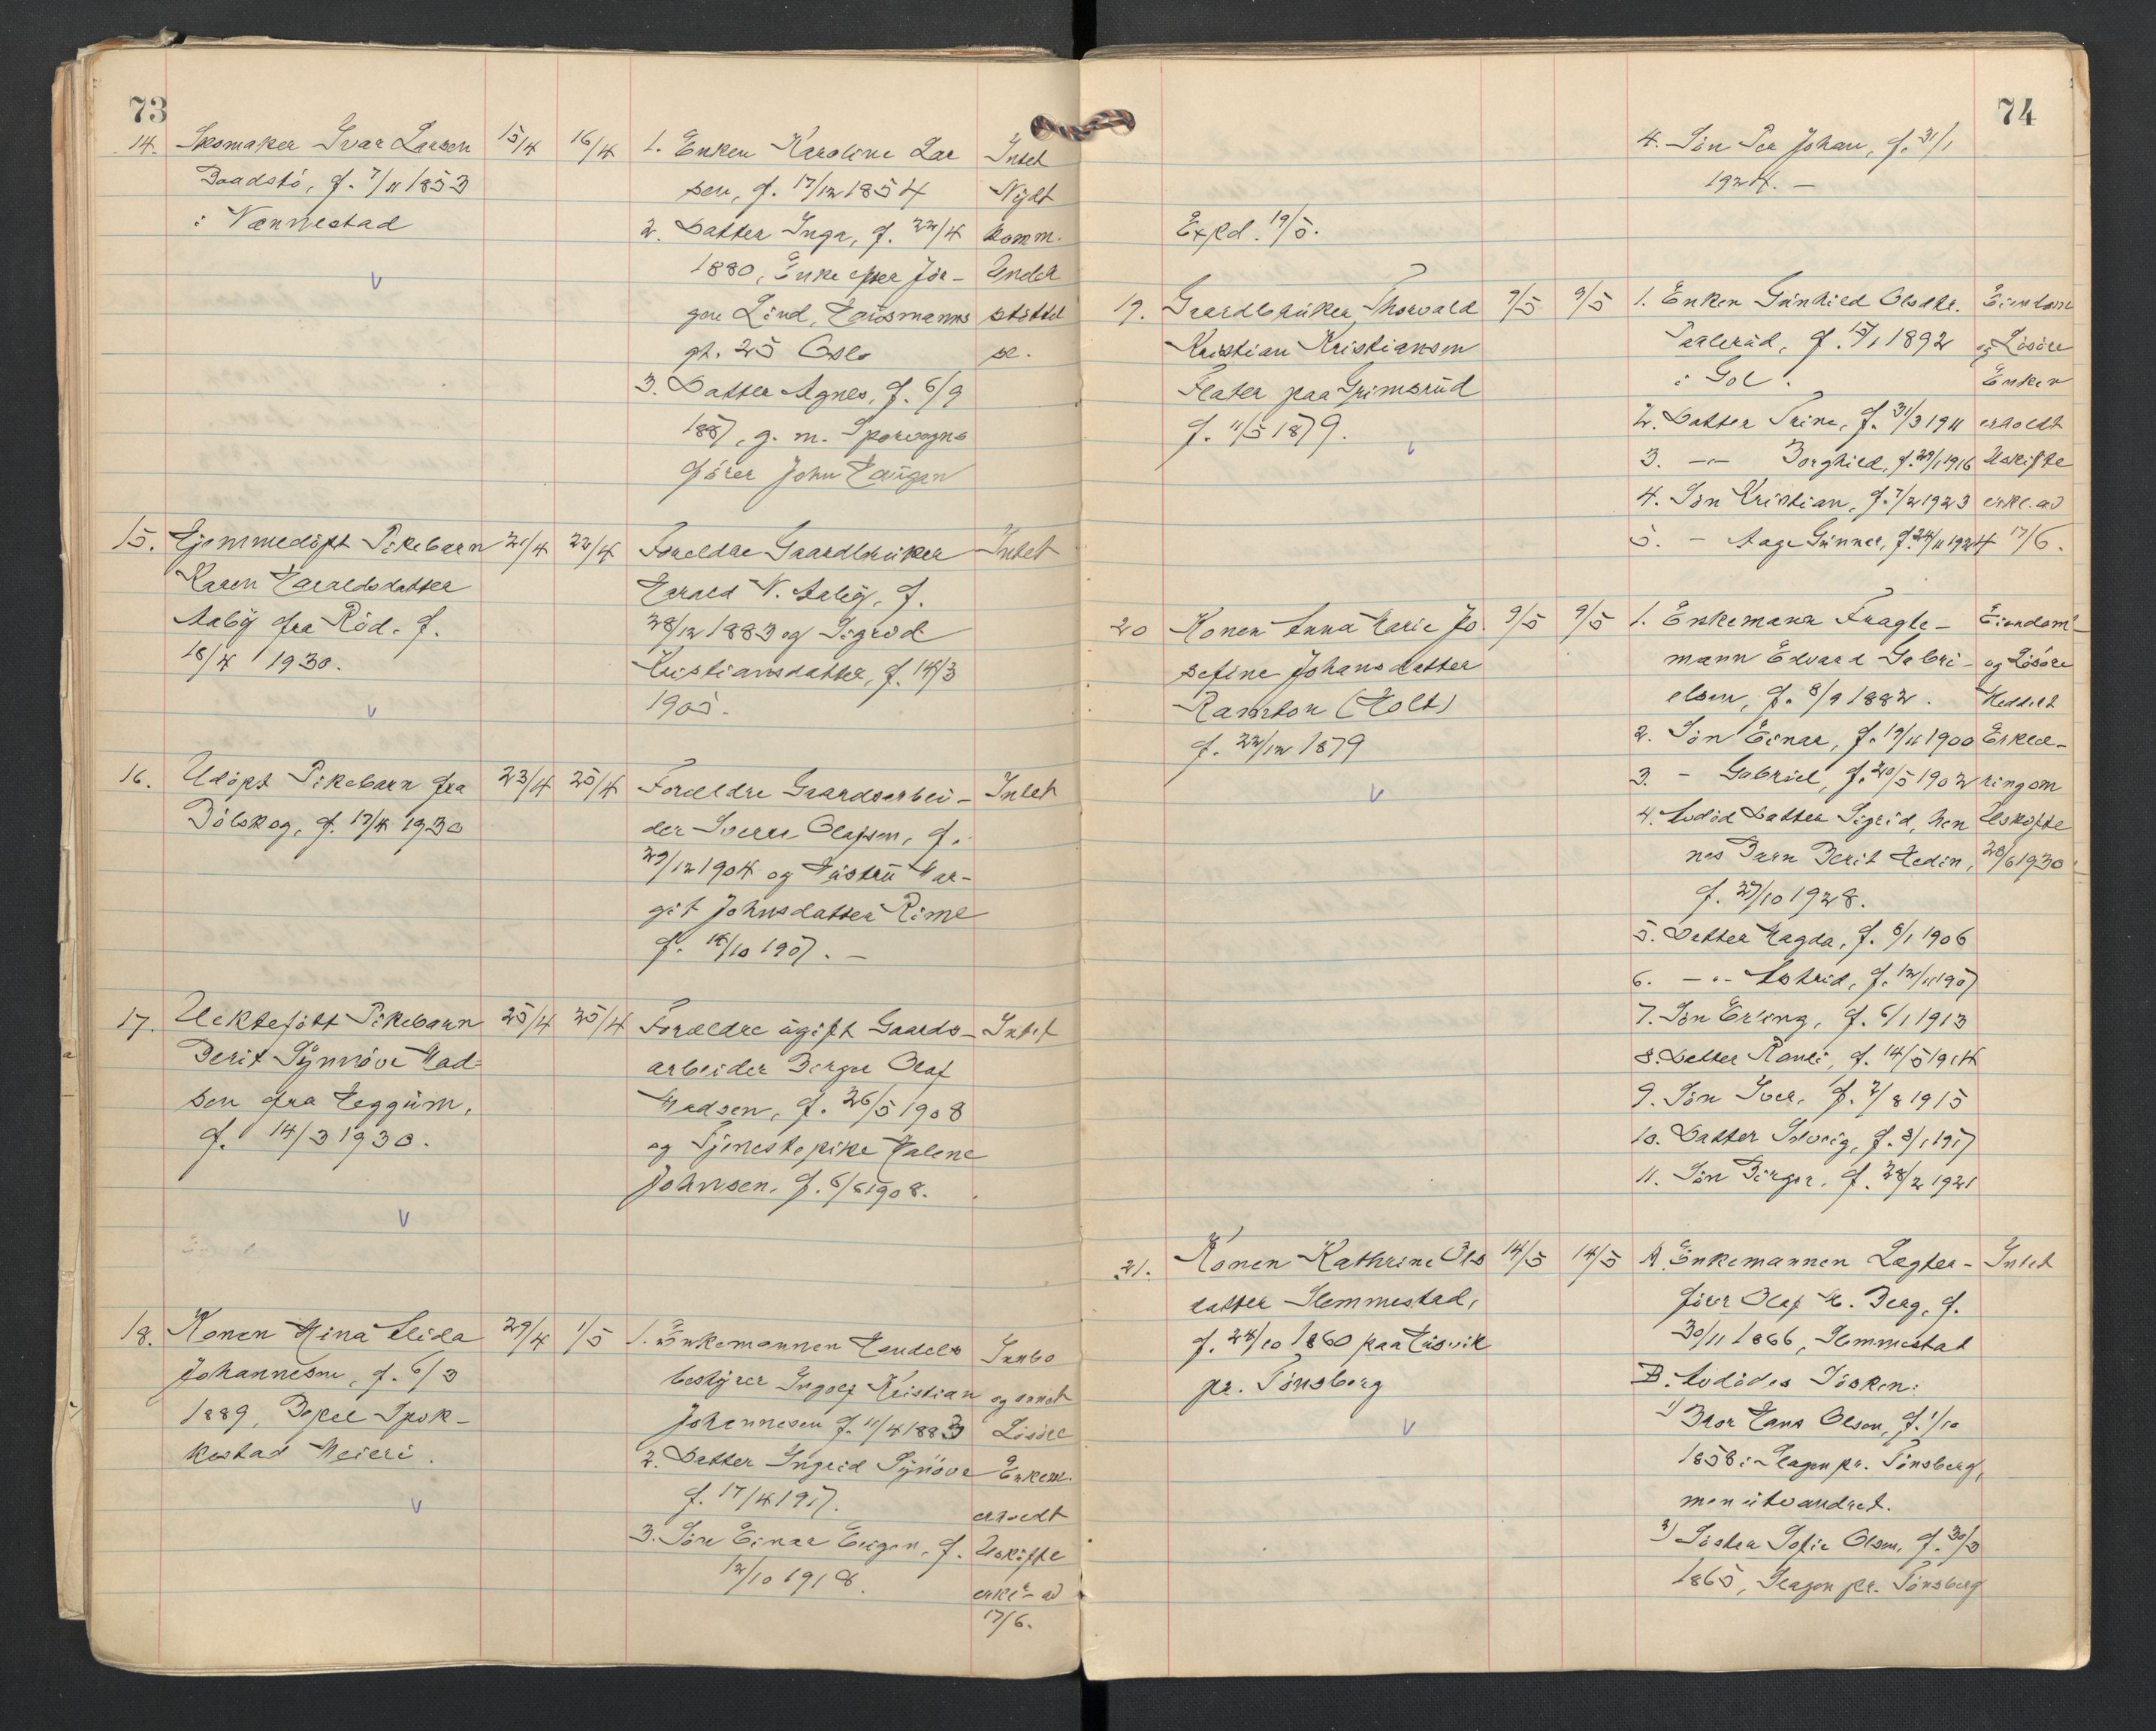 73
14. Skomaker Ivar Larsen 15/4 16/4 1. Enken Karoline Lar Intet
Baadstö, f. 7/11 1853 sen, f. 17/12 1854 Nydt
i Vannestad 2. Datter Inga, f. 22/4 komm.
1880, Enke efter Jör- Under
gen Lind, Hausmanns stöttel
gt. 25 Oslo se.
3. Datter Agnes, f. 6/9
1887, g. m. Sporvogns
förer John Haugan
15. Hjemmedöpt Pikebarn 21/4 22/4 Foreldre Gaardbruker Intet
Karen Haraldsdatter Harald N. Aaby, f.
Aaby fra Röd. f. 28/12 1883 og Sigrid
18/4 1930. Kristiansdatter, f. 14/3
1905.
16. Udöpt Pikebarn fra 23/4 25/4 Foreldre Gaardsarbei- Intet
Bölskog, f. 17/4 1930 der Sverre Olafsen, f.
29/12 1904 og Hustru Mar-
git Johnsdatter Rime
f. 14/10 1907. -
17. Uektefött Pikebarn 25/4 25/4 Foreldre ugift Gaards- Intet
Berit Synnöve Mad- arbeider Birger Olaf
sen fra Heggum, Madsen, f. 26/5 1908
f. 14/3 1930. og Tjenestepike Halene
Johnsen, f. 6/6 1908.
18. Konen Mina Alida 29/4 1/5 1. Enkemannen Handels Innbo
Johannesen, f. 6/3 bestyrer Ingolf Kristian og annet
1889, Bopel Spik- Johannesen f. 11/4 1883 Lösöre
kestad Meieri. 2. Datter Ingrid Synöve Enkem.
f. 17/4 1917. erholdt
3. Sön Einar Eugen, f. Uskifte
12/10 1918. erkl- ad
17/6.
74
4. Sön Per Johan, f. 31/1
1924. -
Expd. 19/5.
19. Gaardbruker Thorvald 9/5 9/5 1. Enken Gunhild Olsdtr. Eiendom
Kristian Kristiansen Paalerud, f. 15/1 1892 og Lösöre
Flater paa Grimsrud i Gol. Enken
f. 11/5 1879. 2. Datter Trine, f. 31/3 1911 erholdt
3. -"- Borghild, f. 29/1 1916 Uskifte
4. Sön Kristian, f. 7/2 1923 erkl. ad
5. - Aage Gunnar, f. 24/11 1924 17/6.
20 Konen Anna Marie Jo. 9/5 9/5 1. Enkemann Fragte- Eiendom
sefine Johansdatter mann Edvard Gabri- og Lösöre
Ramton (Holt) elsen, f. 8/9 1882. Meddelt
f. 22/12 1879 2. Sön Einar, f. 19/11 1900 Erkle-
3. - Gabriel, f. 20/5 1902 ring om
4. Avdöd Datter Sigrid, hen Uskifte
nes Barn Berit Hedin, 28/6 1930
f. 27/10 1928.
5. Datter Magda, f. 8/1 1906
6. -"- Astrid, f. 12/11 1907
7. Sön Erling, f. 6/1 1913
8. Datter Ranti, f. 14/5 1914
9. Sön Iver, f. 2/8 1915
10. Datter Solveig, f. 8/1 1917
11. Sön Birger, f. 28/2 1921
21. Konen Kathrine Ols 14/5 14/5 A. Enkemannen Lagter- Intet
datter Slemmestad, förer Olaf M. Berg, f.
f. 24/10 1860 paa Husvik 30/11 1866, Slemmestad
pr. Tönsberg B. Avdödes Sösken:
1) Bror Hans Olsen, f. 1/10
1858 i Slagen pr. Tönsberg,
men utvandret.
2) Söster Sofie Olsen, f. 30/3
1865, Slagen pr. Tönsberg